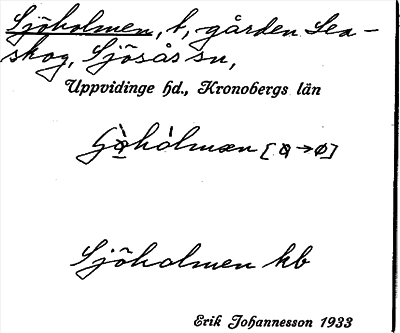 Sjöholmen, t, gården Lea-
skog, Sjösås sn,
Uppvidinge hd., Kronobergs län
Sjöholmen kb
Erik Johannesson 1933